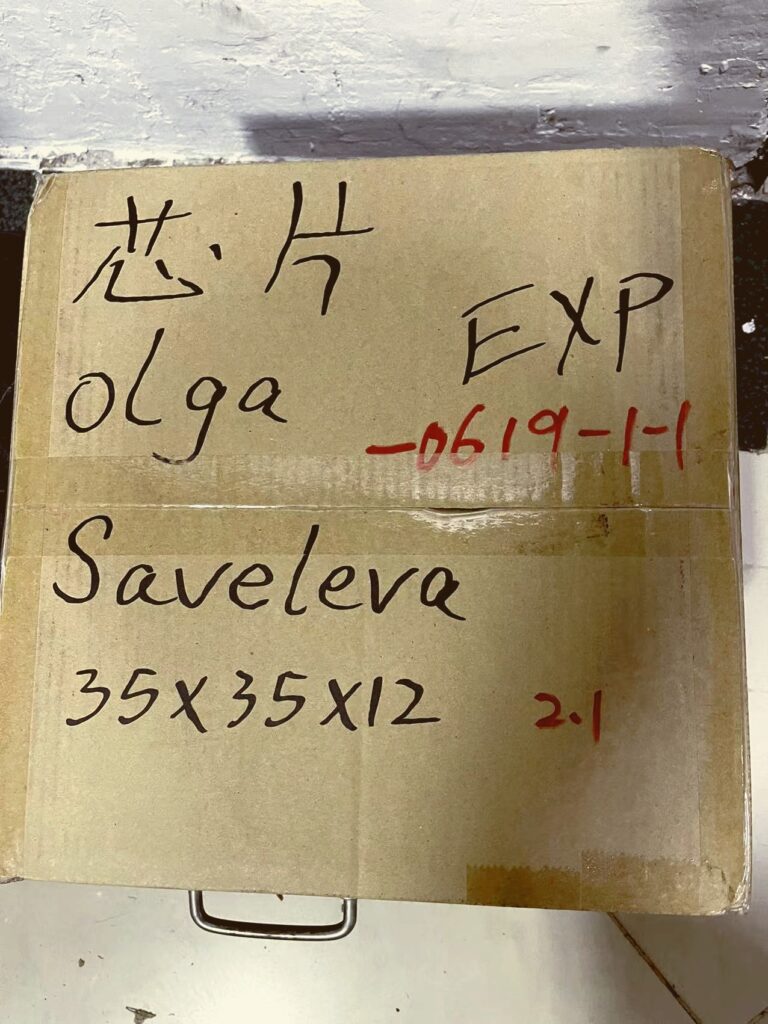 芯片
EXP
olga
-0619-1-1
Saveleva
35X35X12
2.1